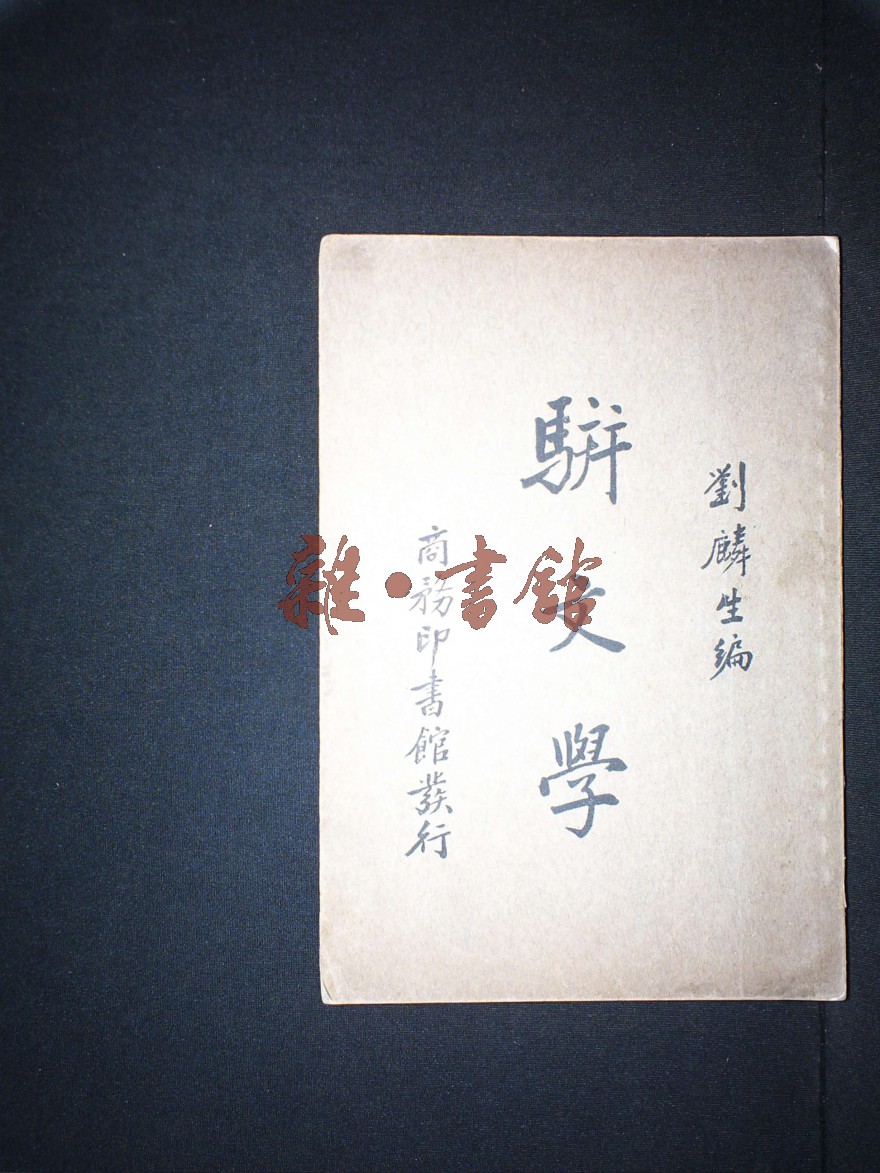 劉麟生編
駢文學
商務印書館發行
雜·書館